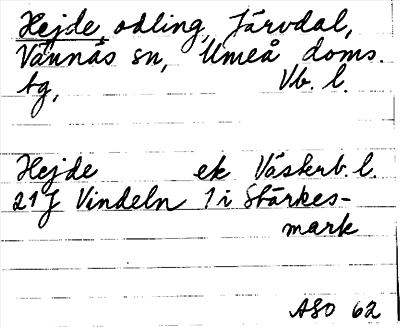 Hejde, odling, Järvdal,
Vännäs sn, Umeå doms.
tg, Vb. l.
Hejde ek Västerb. l.
21J Vindeln 1 i Stärkes-
mark
ASO 62